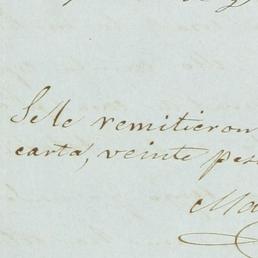 Se le remitieron
carta, veinte pes
Ma